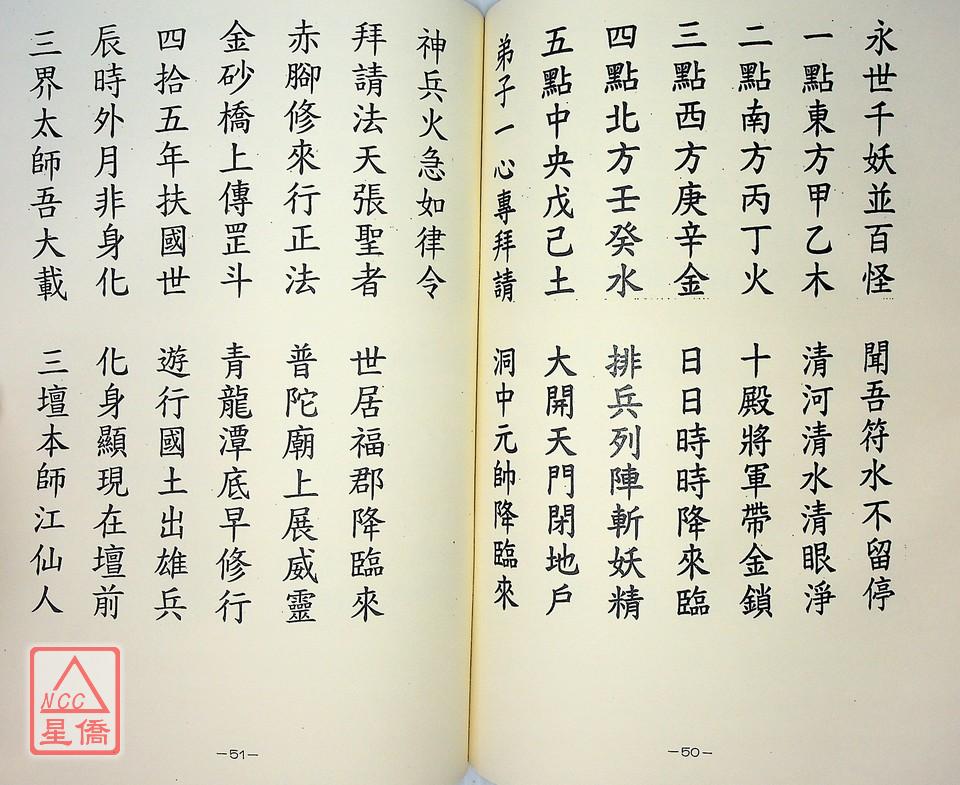 永世千妖並百怪 聞吾符水不留停
一點東方甲乙木 清河清水清眼淨
二點南方丙丁火 十殿將軍帶金鎖
三點西方庚辛金 日日時時降來臨
四點北方壬癸水 排兵列陣斬妖精
五點中央戊己土 大開天門閉地戶
弟子一心專拜請 洞中元帥降臨來
－50－
神兵火急如律令
拜請法天張聖者 世居福郡降臨來
赤腳修來行正法 普陀廟上展威靈
金砂橋上傳罡斗 青龍潭底早修行
四拾五年扶國世 遊行國土出雄兵
辰時外月非身化 化身顯現在壇前
三界太師吾大載 三壇本師江仙人
－51－
NCC
星僑